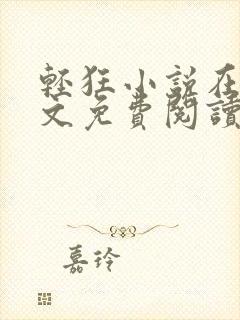 輕狂小說在
文免費閱讀
嘉玲